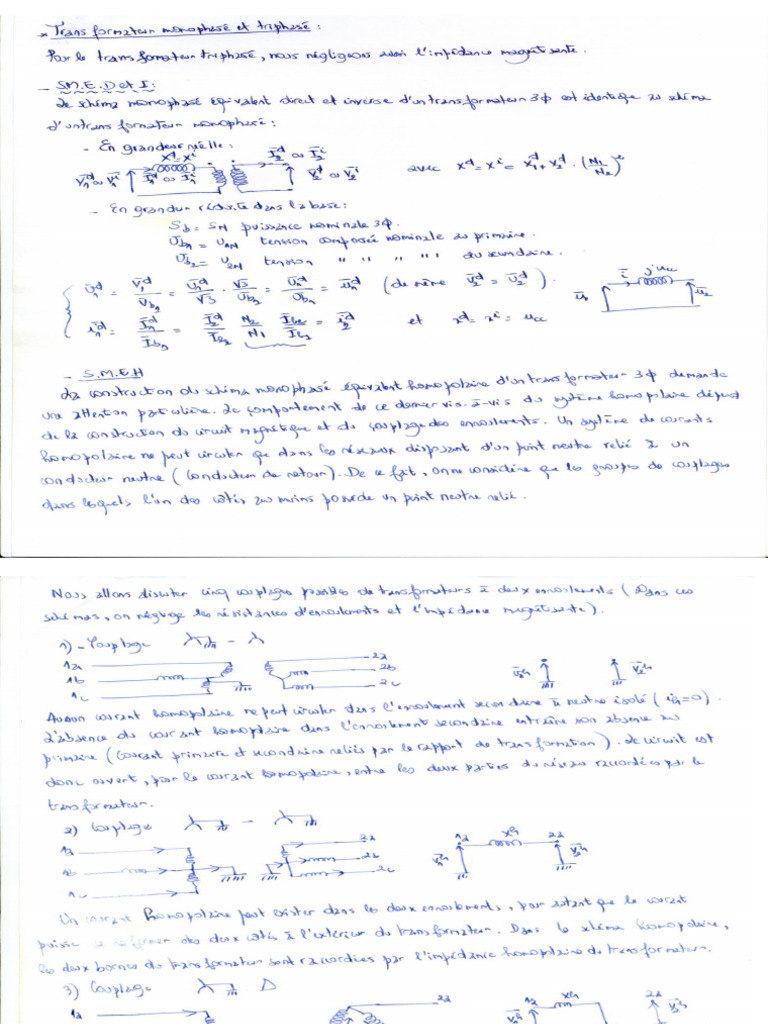 * Transformateur monophasé et triphasé :
Pour le transformateur triphasé, nous négligeons aussi l'impédance magnétisante.
- S.M.E. D et I :
Le schéma monophasé équivalent direct et inverse d'un transformateur 3Φ est identique au schéma
d'un transformateur monophasé :
- En grandeur réelle :
X^d = X^i
V̄₁^d ou V̄₁^i Ī₁^d ou Ī₁^i Ī₂^d ou Ī₂^i V̄₂^d ou V̄₂^i avec X^d = X^i = X₁^d + X₂^d · (N₁/N₂)²
- En grandeur réduite dans la base :
S_b = S_N puissance nominale 3Φ.
U_b1 = U_1N tension composée nominale au primaire.
U_b2 = U_2N tension " " " " au secondaire.
(de même v̄₂^d = ū₂^d).
i j u_cc
ū₁ ū₂
et x^d = x^i = u_cc
- S.M.E.H
La construction du schéma monophasé équivalent homopolaire d'un transformateur 3Φ demande
une attention particulière. Le comportement de ce dernier vis-à-vis du système homopolaire dépend
de la construction du circuit magnétique et du couplage des enroulements. Un système de courants
homopolaire ne peut circuler que dans les réseaux disposant d'un point neutre relié à un
conducteur neutre (conducteur de retour). De ce fait, on ne considère que les groupes de couplages
dans lesquels l'un des côtés au moins possède un point neutre relié.
Nous allons discuter cinq couplages possibles de transformateurs à deux enroulements (Dans ces
schémas, on néglige les résistances d'enroulements et l'impédance magnétisante).
1) - Couplage
1a 2a
1b 2b
1c 2c
Aucun courant homopolaire ne peut circuler dans l'enroulement secondaire à neutre isolé (i_h=0).
L'absence du courant homopolaire dans l'enroulement secondaire entraîne son absence au
primaire (courant primaire et secondaire reliés par le rapport de transformation). Le circuit est
donc ouvert, pour le courant homopolaire, entre les deux parties du réseau raccordées par le
transformateur.
2) Couplage
1a 2a 1a x^h 2a
1b 2b
1c 2c
Un courant homopolaire peut exister dans les deux enroulements, pour autant que le courant
puisse se refermer des deux côtés à l'extérieur du transformateur. Dans le schéma homopolaire,
les deux bornes du transformateur sont raccordées par l'impédance homopolaire du transformateur.
3) Couplage Δ
1a 2a 1a x^h 2a